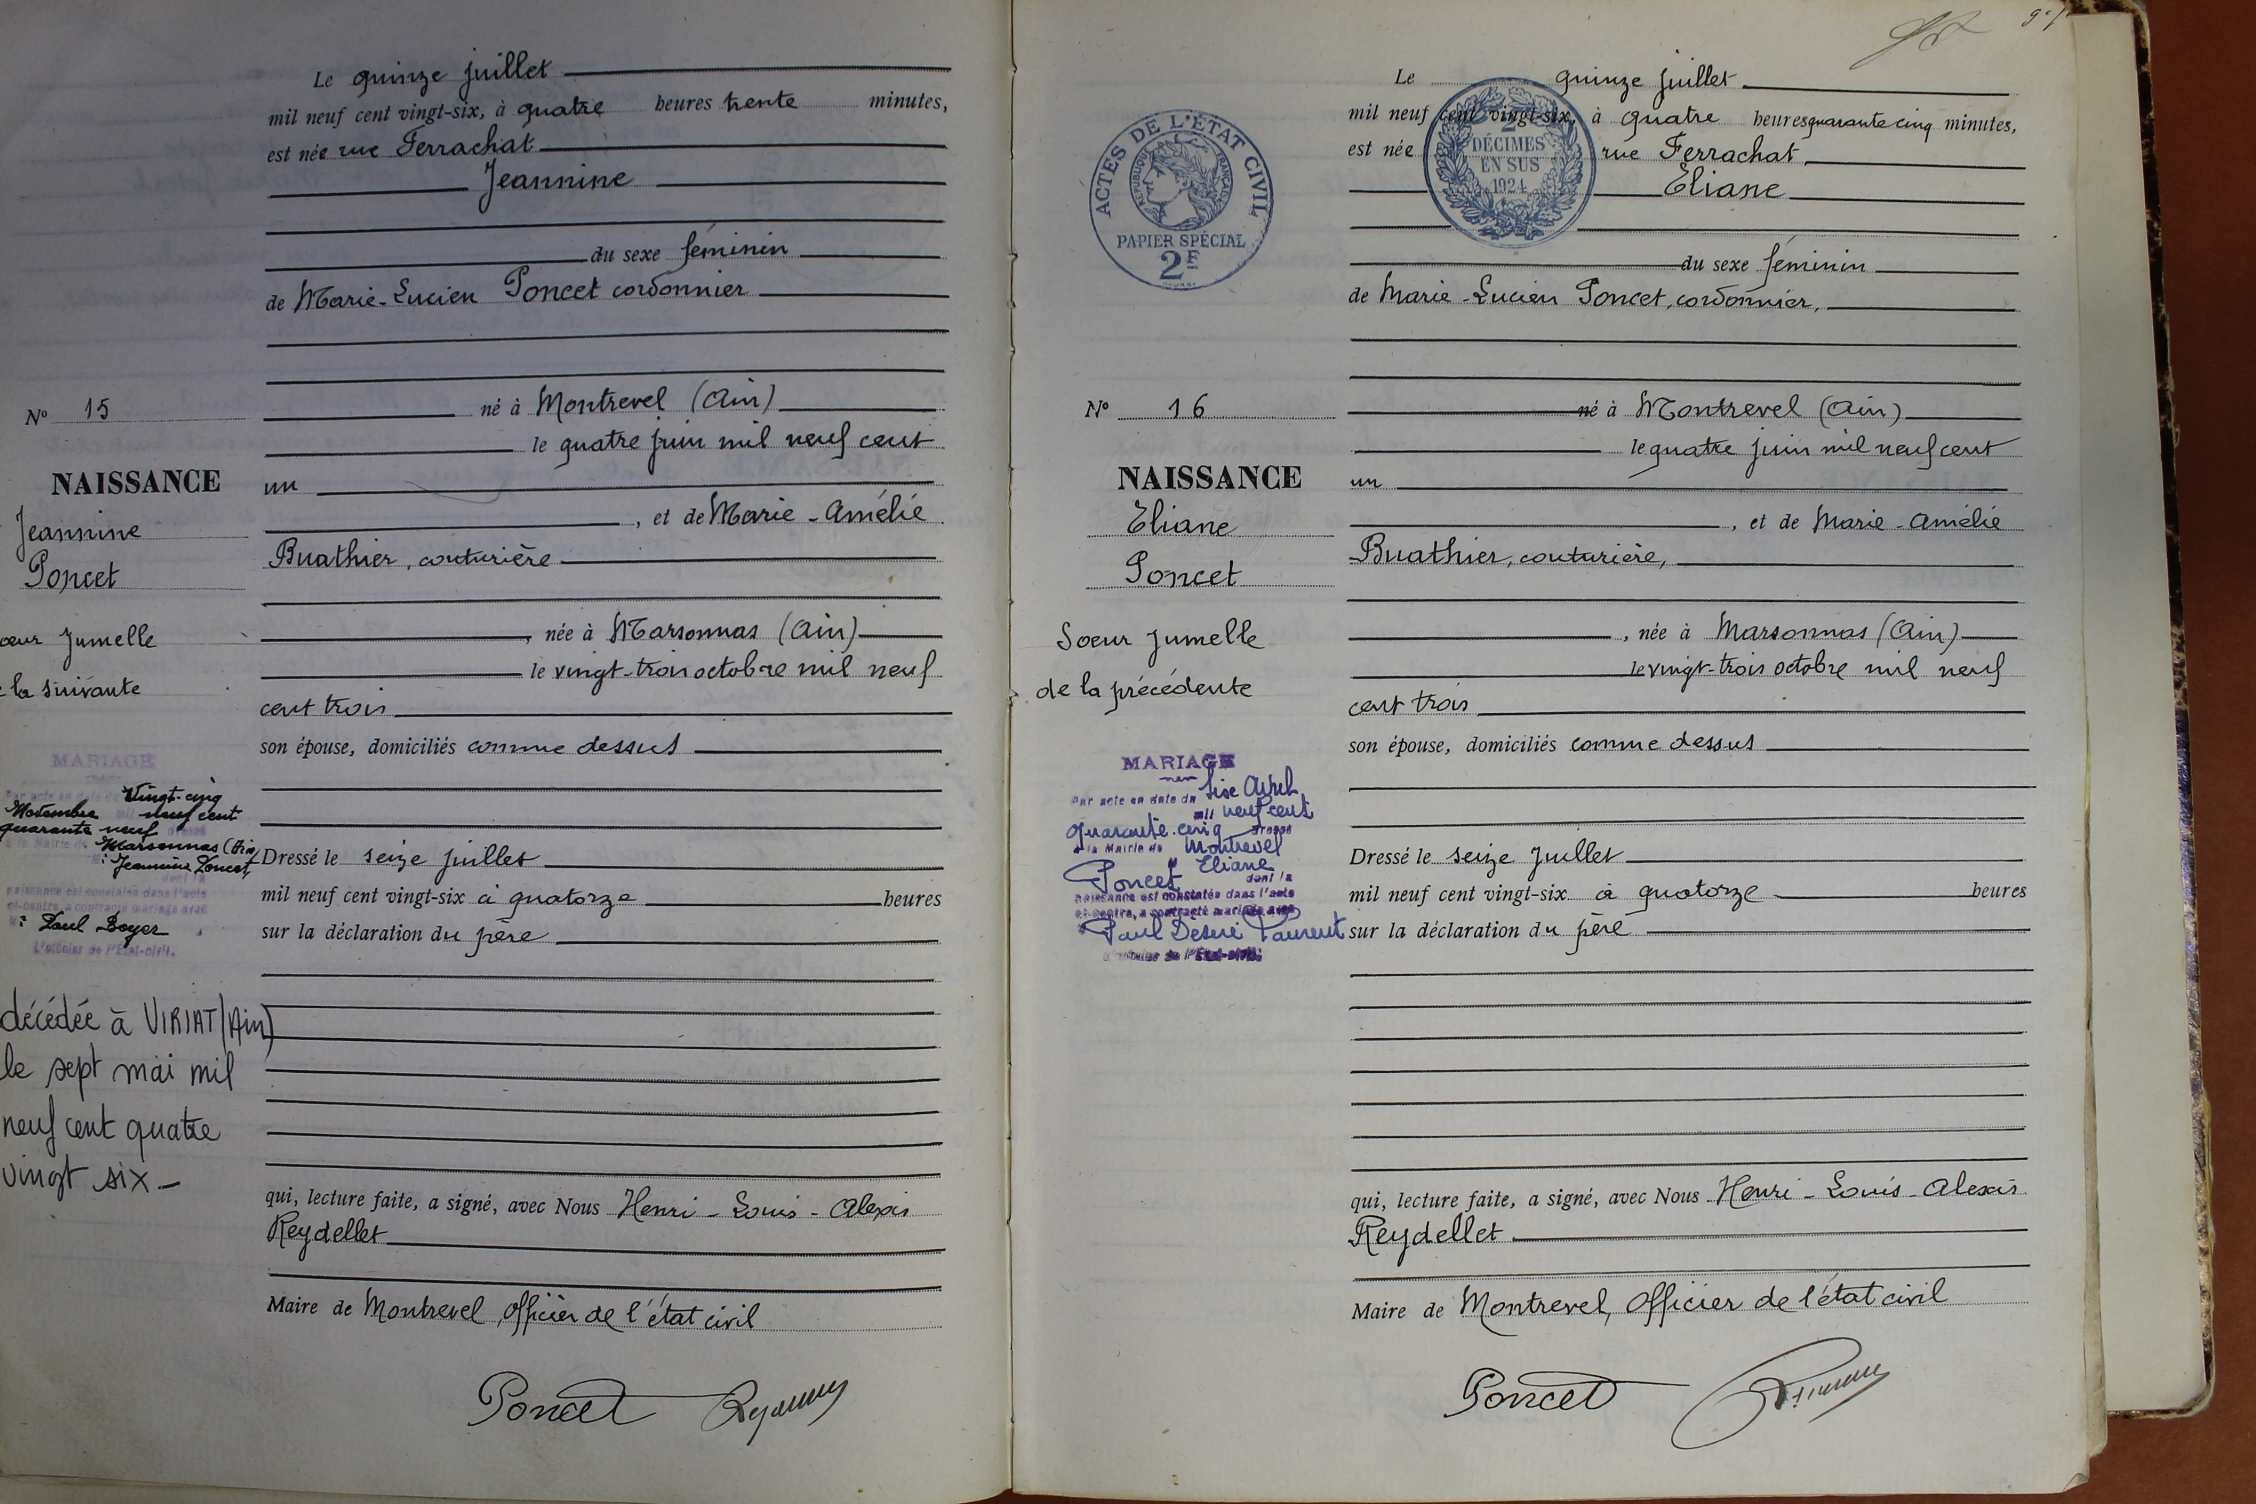 Le quinze juillet
mil neuf cent vingt-six, à quatre heures trente minutes,
est née rue Ferrachat
Jeannine
du sexe féminin
de Marie-Lucien Poncet cordonnier
né à Montrevel (Ain)
le quatre juin mil neuf cent
un
, et de Marie-Amélie
Buathier, couturière
, née à Marsonnas (Ain)
le vingt-trois octobre mil neuf
cent trois
son épouse, domiciliés comme dessus
Dressé le seize juillet
mil neuf cent vingt-six à quatorze heures
sur la déclaration du père
qui, lecture faite, a signé, avec Nous Henri-Louis-Alexis
Reydellet
Maire de Montrevel, officier de l'état civil
Poncet
No 15
NAISSANCE
Jeannine
Poncet
oeur jumelle
la suivante
MARIAGE
Par acte en date du Vingt-cinq
Novembre mil neuf cent
quarante neuf
à la Mairie de Marsonnas (Ain)
Jeannine Poncet
dont la
naissance est constatée dans l'acte
ci-contre, a contracté mariage avec
Paul Boyer
L'officier de l'Etat-civil.
décédée à VIRIAT (Ain)
le sept mai mil
neuf cent quatre
vingt six
Le quinze juillet
mil neuf cent vingt-six, à quatre heures quarante cinq minutes,
est née rue Ferrachat
Eliane
du sexe féminin
de Marie-Lucien Poncet, cordonnier,
né à Montrevel (Ain)
le quatre juin mil neuf cent
un
, et de Marie-Amélie
Buathier, couturière,
, née à Marsonnas (Ain)
le vingt-trois octobre mil neuf
cent trois
son épouse, domiciliés comme dessus
Dressé le seize juillet
mil neuf cent vingt-six à quatorze heures
sur la déclaration du père
qui, lecture faite, a signé, avec Nous Henri-Louis-Alexis
Reydellet
Maire de Montrevel, officier de l'état civil
Poncet
ACTES DE L'ÉTAT CIVIL
RÉPUBLIQUE FRANÇAISE
PAPIER SPÉCIAL
2F
2
DÉCIMES
EN SUS
1924
No 16
NAISSANCE
Eliane
Poncet
Soeur jumelle
de la précédente
MARIAGE
Par acte en date du Six Avril
mil neuf cent
quarante-cinq dressé
à la Mairie de Montrevel
Eliane
Poncet dont la
naissance est constatée dans l'acte
ci-contre, a contracté mariage avec
Paul Désiré Laurent
L'officier de l'Etat-civil